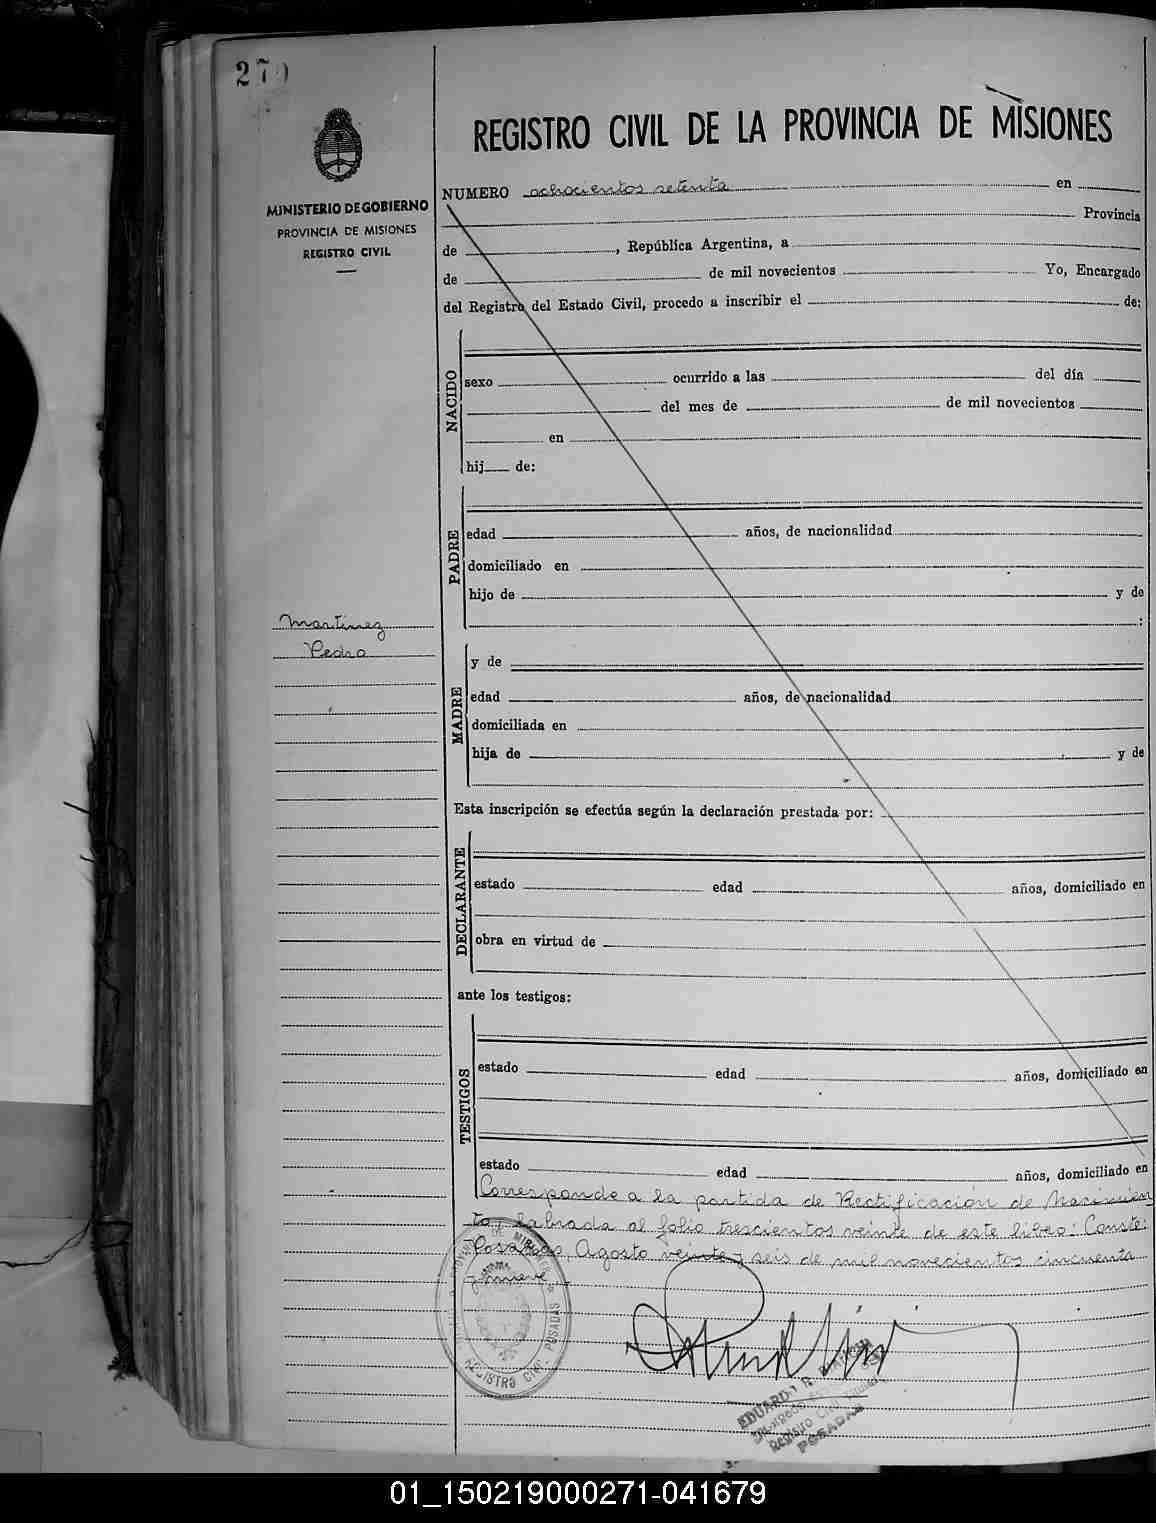 270
REGISTRO CIVIL DE LA PROVINCIA DE MISIONES
MINISTERIO DE GOBIERNO
PROVINCIA DE MISIONES
REGISTRO CIVIL
NUMERO ochocientos setenta en
Provincia
de , República Argentina, a
de de mil novecientos Yo, Encargado
del Registro del Estado Civil, procedo a inscribir el de:
NACIDO
sexo ocurrido a las del día
del mes de de mil novecientos
en
hij de:
PADRE
edad años, de nacionalidad
domiciliado en
hijo de y de
:
Martinez
Pedro
MADRE
y de
edad años, de nacionalidad
domiciliada en
hija de y de
Esta inscripción se efectúa según la declaración prestada por:
DECLARANTE
estado edad años, domiciliado en
obra en virtud de
ante los testigos:
TESTIGOS
estado edad años, domiciliado en
estado edad años, domiciliado en
Corresponde a la partida de Rectificación de Nacimien
to, labrada al folio trescientos veinte de este libro: Conste:
Posadas, Agosto veinte y seis de mil novecientos cincuenta
y nueve
REGISTRO CIVIL POSADAS
EDUARDO R.
Encargado
Registro Civil
POSADAS
01_150219000271-041679